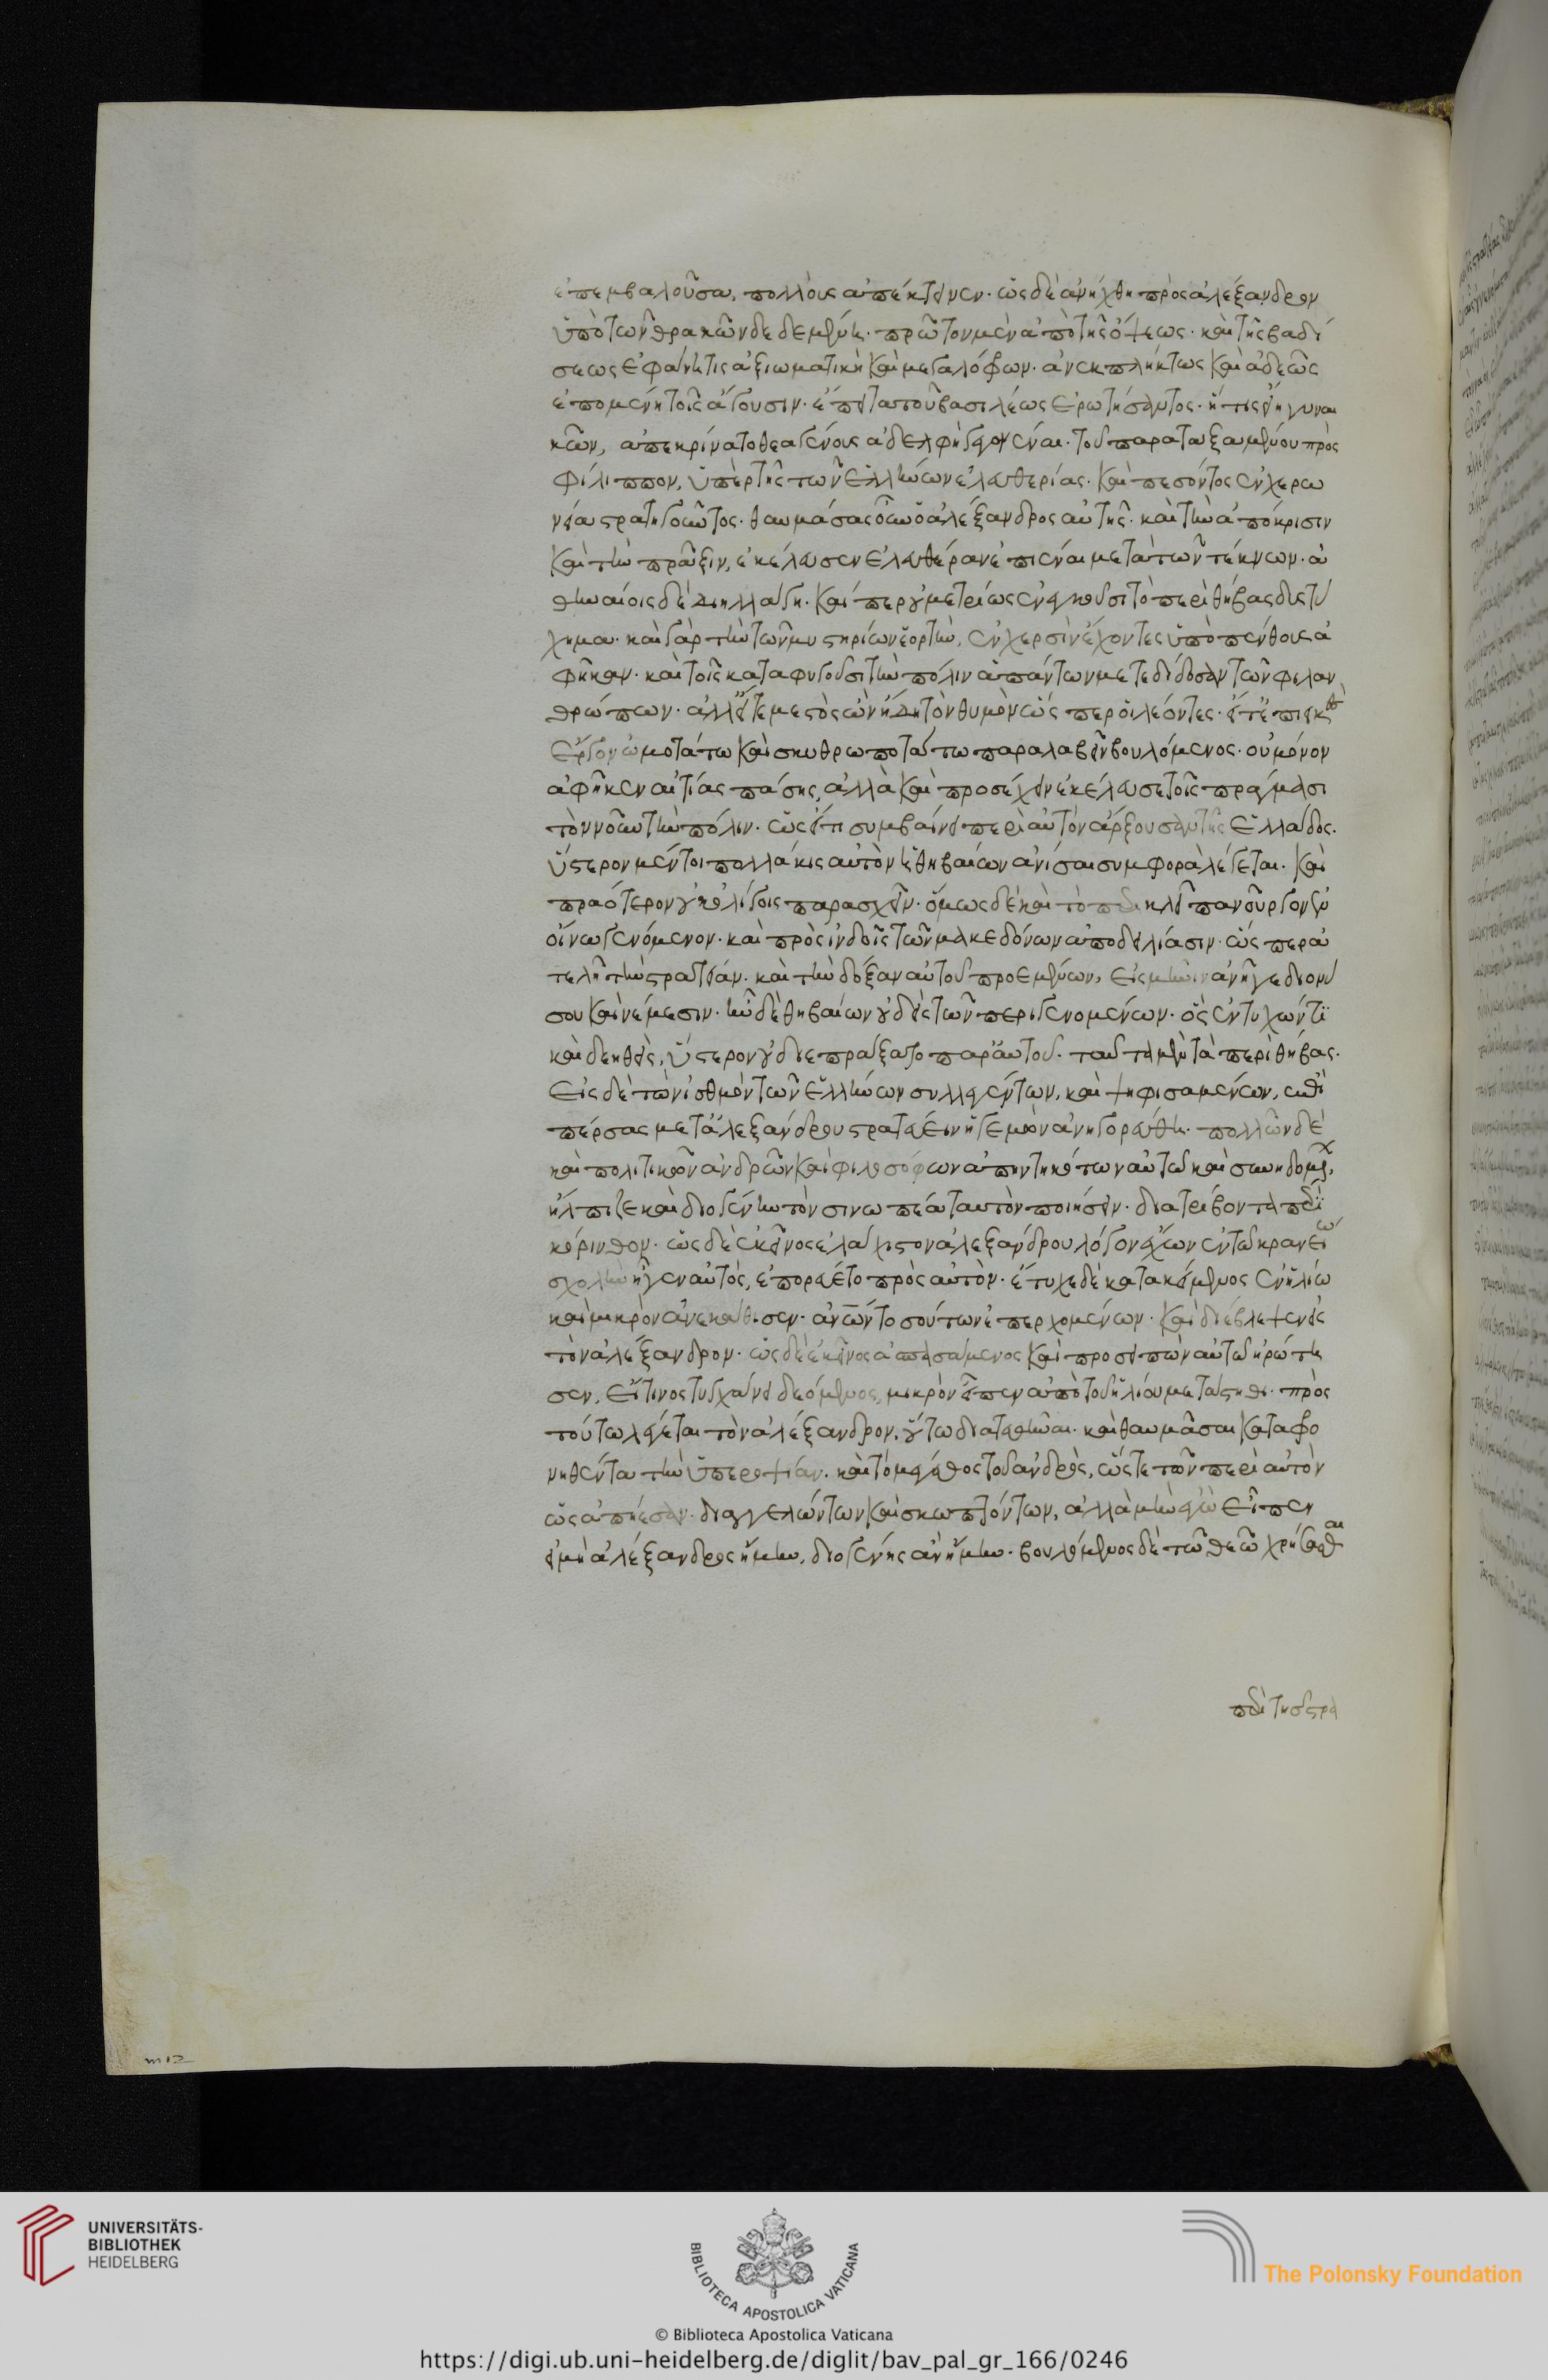 ἐπεμβαλοῦσα, πολλοὺς ἀπέκτεινεν· ὡς δὲ ἀνήχθη πρὸς ἀλέξανδρον
ὑπὸ τῶν θρακῶν δεδεμένη· πρῶτον μὲν ἀπὸ τῆς ὄψεως· καὶ τῆς βαδί
σεως ἐφαίνετό τις ἀξιωματικὴ καὶ μεγαλόφρων· ἀνεκπλήκτως καὶ ἀδεῶς
ἑπομένη τοῖς ἄγουσιν· ἔπειτα τοῦ βασιλέως ἐρωτήσαντος· ἥτις εἴη γυναι
κῶν, ἀπεκρίνατο θεαγένους ἀδελφὴ γεγονέναι· τοῦ παραταξαμένου πρὸς
φίλιππον, ὑπὲρ τῆς τῶν ἑλλήνων ἐλευθερίας· καὶ πεσόντος ἐν χερω
νεία στρατηγοῦντος· θαυμάσας οὖν ὁ ἀλέξανδρος αὐτῆς· καὶ τὴν ἀπόκρισιν
καὶ τὴν πρᾶξιν, ἐκέλευσεν ἐλευθέραν ἀπιέναι μετὰ τῶν τέκνων· ἀ
θηναίοις δὲ διηλλάγη· καίπερ οὐ μετρίως ἐνεγκοῦσι τὸ περὶ θήβας δυστύ
χημα· καὶ γὰρ τὴν τῶν μυστηρίων ἑορτὴν, ἐν χερσὶν ἔχοντες ὑπὸ πένθους ἀ
φῆκαν· καὶ τοῖς καταφυγοῦσι τὴν πόλιν ἁπάντων μετεδίδοσαν τῶν φιλαν
θρώπων· ἀλλ' εἴτε μεστὸς ὢν ἤδη τὸν θυμὸν ὥσπερ οἱ λέοντες· εἴτ' ἐπιεικὲς
ἔργον ὠμοτάτω καὶ σκυθρωποτάτω παραλαβεῖν βουλόμενος· οὐ μόνον
ἀφῆκεν αἰτίας πάσης, ἀλλὰ καὶ προσέχειν ἐκέλευσε τοῖς πράγμασι
τὸν νοῦν τὴν πόλιν· ὡς εἴ τι συμβαίνει περὶ αὐτὸν ἄρξουσαν τῆς ἑλλάδος·
ὕστερον μέντοι πολλάκις αὐτὸν ἡ θηβαίων ἀνιᾶσαι συμφορὰ λέγεται· καὶ
πραότερον οὐκ ὀλίγοις παρασχεῖν· ὅμως δὲ καὶ τὸ περὶ κλεῖτον ἔργον ἐν
οἴνω γενόμενον· καὶ πρὸς ἰνδοὺς τῶν μακεδόνων ἀποδειλίασιν· ὥσπερ ἀ
τελῆ τὴν στρατείαν· καὶ τὴν δόξαν αὐτοῦ προεμένων, εἰς μῆνιν ἀνῆγε διονύ
σου καὶ νέμεσιν· ἦν δὲ θηβαίων οὐδεὶς τῶν περιγενομένων· ὃς ἐντυχών τι
καὶ δεηθεὶς, ὕστερον οὐ διεπράξατο παρ' αὐτοῦ· ταῦτα μὲν τὰ περὶ θήβας·
εἰς δὲ τὸν ἰσθμὸν τῶν ἑλλήνων συλλεγέντων, καὶ ψηφισαμένων, ἐπὶ
πέρσας μετ' ἀλεξάνδρου στρατεύειν ἡγεμὼν ἀνηγορεύθη· πολλῶν δὲ
καὶ πολιτικῶν ἀνδρῶν καὶ φιλοσόφων ἀπηντηκότων αὐτῶ καὶ συνηδομένων,
ἤλπιζε καὶ διογένην τὸν σινωπέα ταυτὸν ποιήσειν· διατρίβοντα περὶ
κόρινθον· ὡς δὲ ἐκεῖνος ἐλάχιστον ἀλεξάνδρου λόγον ἔχων ἐν τῶ κρανείω
σχολὴν ἦγεν αὐτὸς, ἐπορεύετο πρὸς αὐτὸν· ἔτυχε δὲ κατακείμενος ἐν ἡλίω
καὶ μικρὸν ἀνεκάθισεν· ἀνων τοσούτων ἐπερχομένων· καὶ διέβλεψεν εἰς
τὸν ἀλέξανδρον· ὡς δὲ ἐκεῖνος ἀσπασάμενος καὶ προσειπὼν αὐτῶ ἠρώτη
σεν, εἴ τινος τυγχάνει δεόμενος, μικρὸν εἶπεν ἀπὸ τοῦ ἡλίου μετάστηθι· πρὸς
τοῦτο λέγεται τὸν ἀλέξανδρον, οὕτω διατεθῆναι· καὶ θαυμάσαι καταφρο
νηθέντα τὴν ὑπεροψίαν· καὶ τὸ μέγεθος τοῦ ἀνδρὸς, ὥστε τῶν περὶ αὐτὸν
ὡς ἀπήεσαν· διαγγελώντων καὶ σκωπτόντων, ἀλλὰ μὴν ἐγὼ εἶπεν
εἰ μὴ ἀλέξανδρος ἤμην, διογένης ἂν ἤμην· βουλόμενος δὲ τῶ θεῶ χρήσασθαι
περὶ τῆς στρα
m12
UNIVERSITÄTS-
BIBLIOTHEK
HEIDELBERG
BIBLIOTECA APOSTOLICA VATICANA
The Polonsky Foundation
© Biblioteca Apostolica Vaticana
https://digi.ub.uni-heidelberg.de/diglit/bav_pal_gr_166/0246